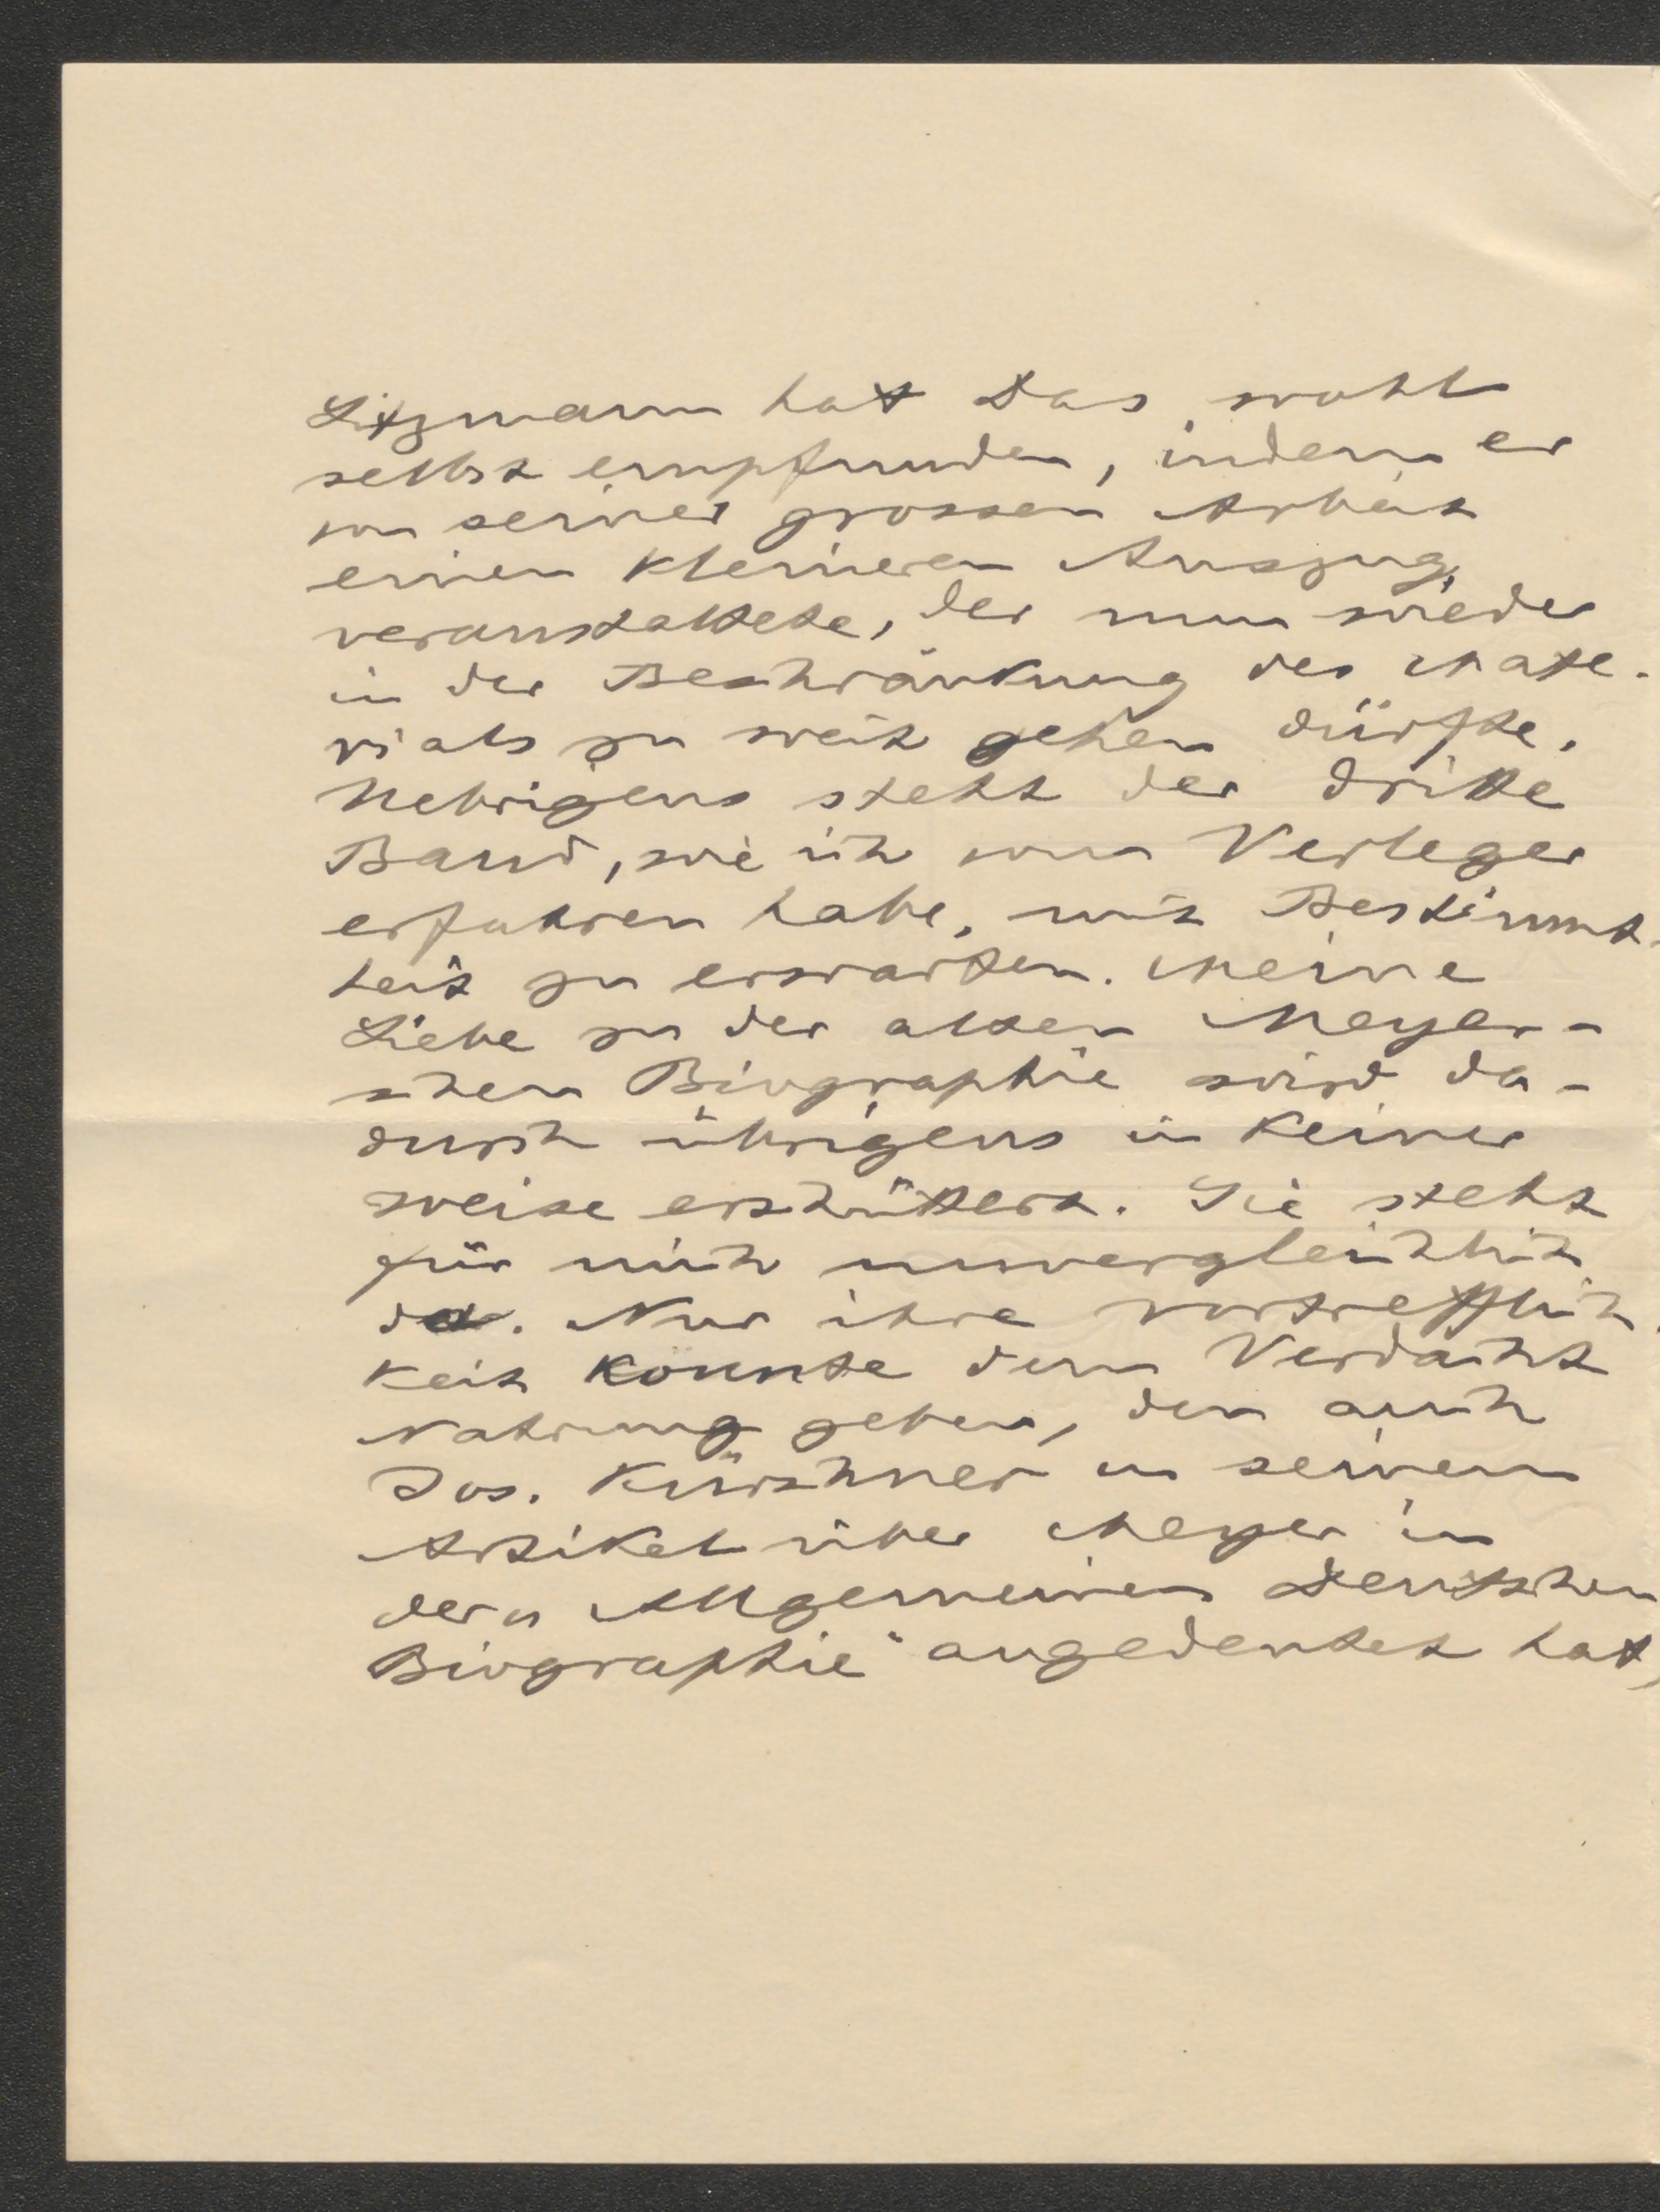 Litzmann hat das wohl
selbst empfunden, indem er
von seiner grossen Arbeit
einen kleineren Auszug
veranstaltete, der nun wieder
in der Beschränkung des Mate-
rials zu weit gehen dürfte.
Uebrigens steht der dritte
Band, wie ich vom Verleger
erfahren habe, mit Bestimmt-
heit zu erwarten. Meine
Liebe zu der alten Meyer-
schen Biographie wird da-
durch übrigens in keiner
Weise erschüttert. Sie steht
für mich unvergleichlich
da. Nur ihre Vortrefflich-
keit könnte dem Verdacht
Nahrung geben, den auch
Jos. Kürschner in seinem
Artikel über Meyer in
der „Allgemeinen Deutschen
Biographie" angedeutet hat,